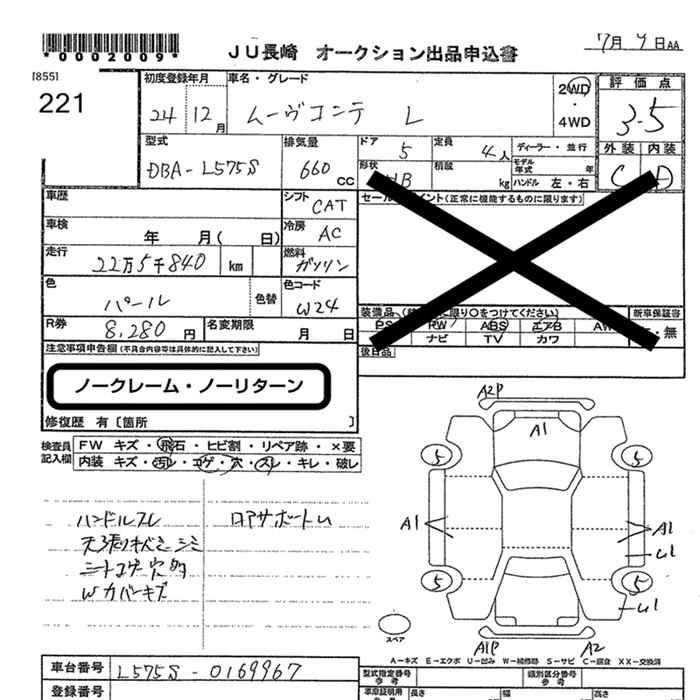 *0002009*
JU長崎 オークション出品申込書
7月9日AA
[855]
221
初度登録年月
24 12月
車名・グレード
ムーヴコンテ L
2WD
・
4WD
評価点
3.5
外装 内装
C D
型式
DBA-L575S
排気量
660 CC
ドア
5
定員
4人
ディーラー・並行
モデル年式 年
形状
HB
積載
kg
ハンドル 左・右
車歴
シフト
CAT
車検
年 月( 日)
冷房
AC
走行
22万5千840 km
燃料
ガソリン
色
パール
色替
色コード
W24
R券
8,280円
名変期限
月 日
(正常に機能するものに限ります)
装備品
限り○をつけてください)
新車保証書
・無
PS RW ABS エアB AW
ナビ TV カワ
後日品
注意事項申告欄(不具合内容等は具体的に記入して下さい)
ノークレーム・ノーリターン
修復歴 有〔箇所 〕
検査員記入欄
FW キズ・飛石・ヒビ割・リペア跡・×要
内装 キズ・汚レ・コゲ・穴・スレ・キレ・破レ
ハンドルスレ
天張状ミシミ
シートコゲ穴多
Wカバーキズ
ロアサポートU
A2P
A1
5
5
A1
A1
U1
5
5
U1
A1P
A2
スペア
A-キズ E-エクボ U-凹み W-補修跡 S-サビ C-腐食 XX-交換済
車台番号
L575S-0169967
登録番号
型式指定番号
参考
類別区分番号
参考
車庫証明用
長さ
幅
高さ